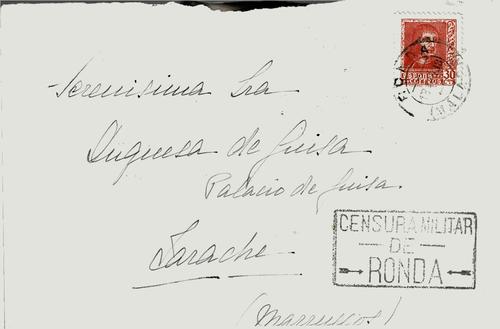 Serenisima Sra
Duquesa de Guisa
Palacio de Guisa.
Larache
(Marruecos)
CENSURA MILITAR
DE
RONDA
30